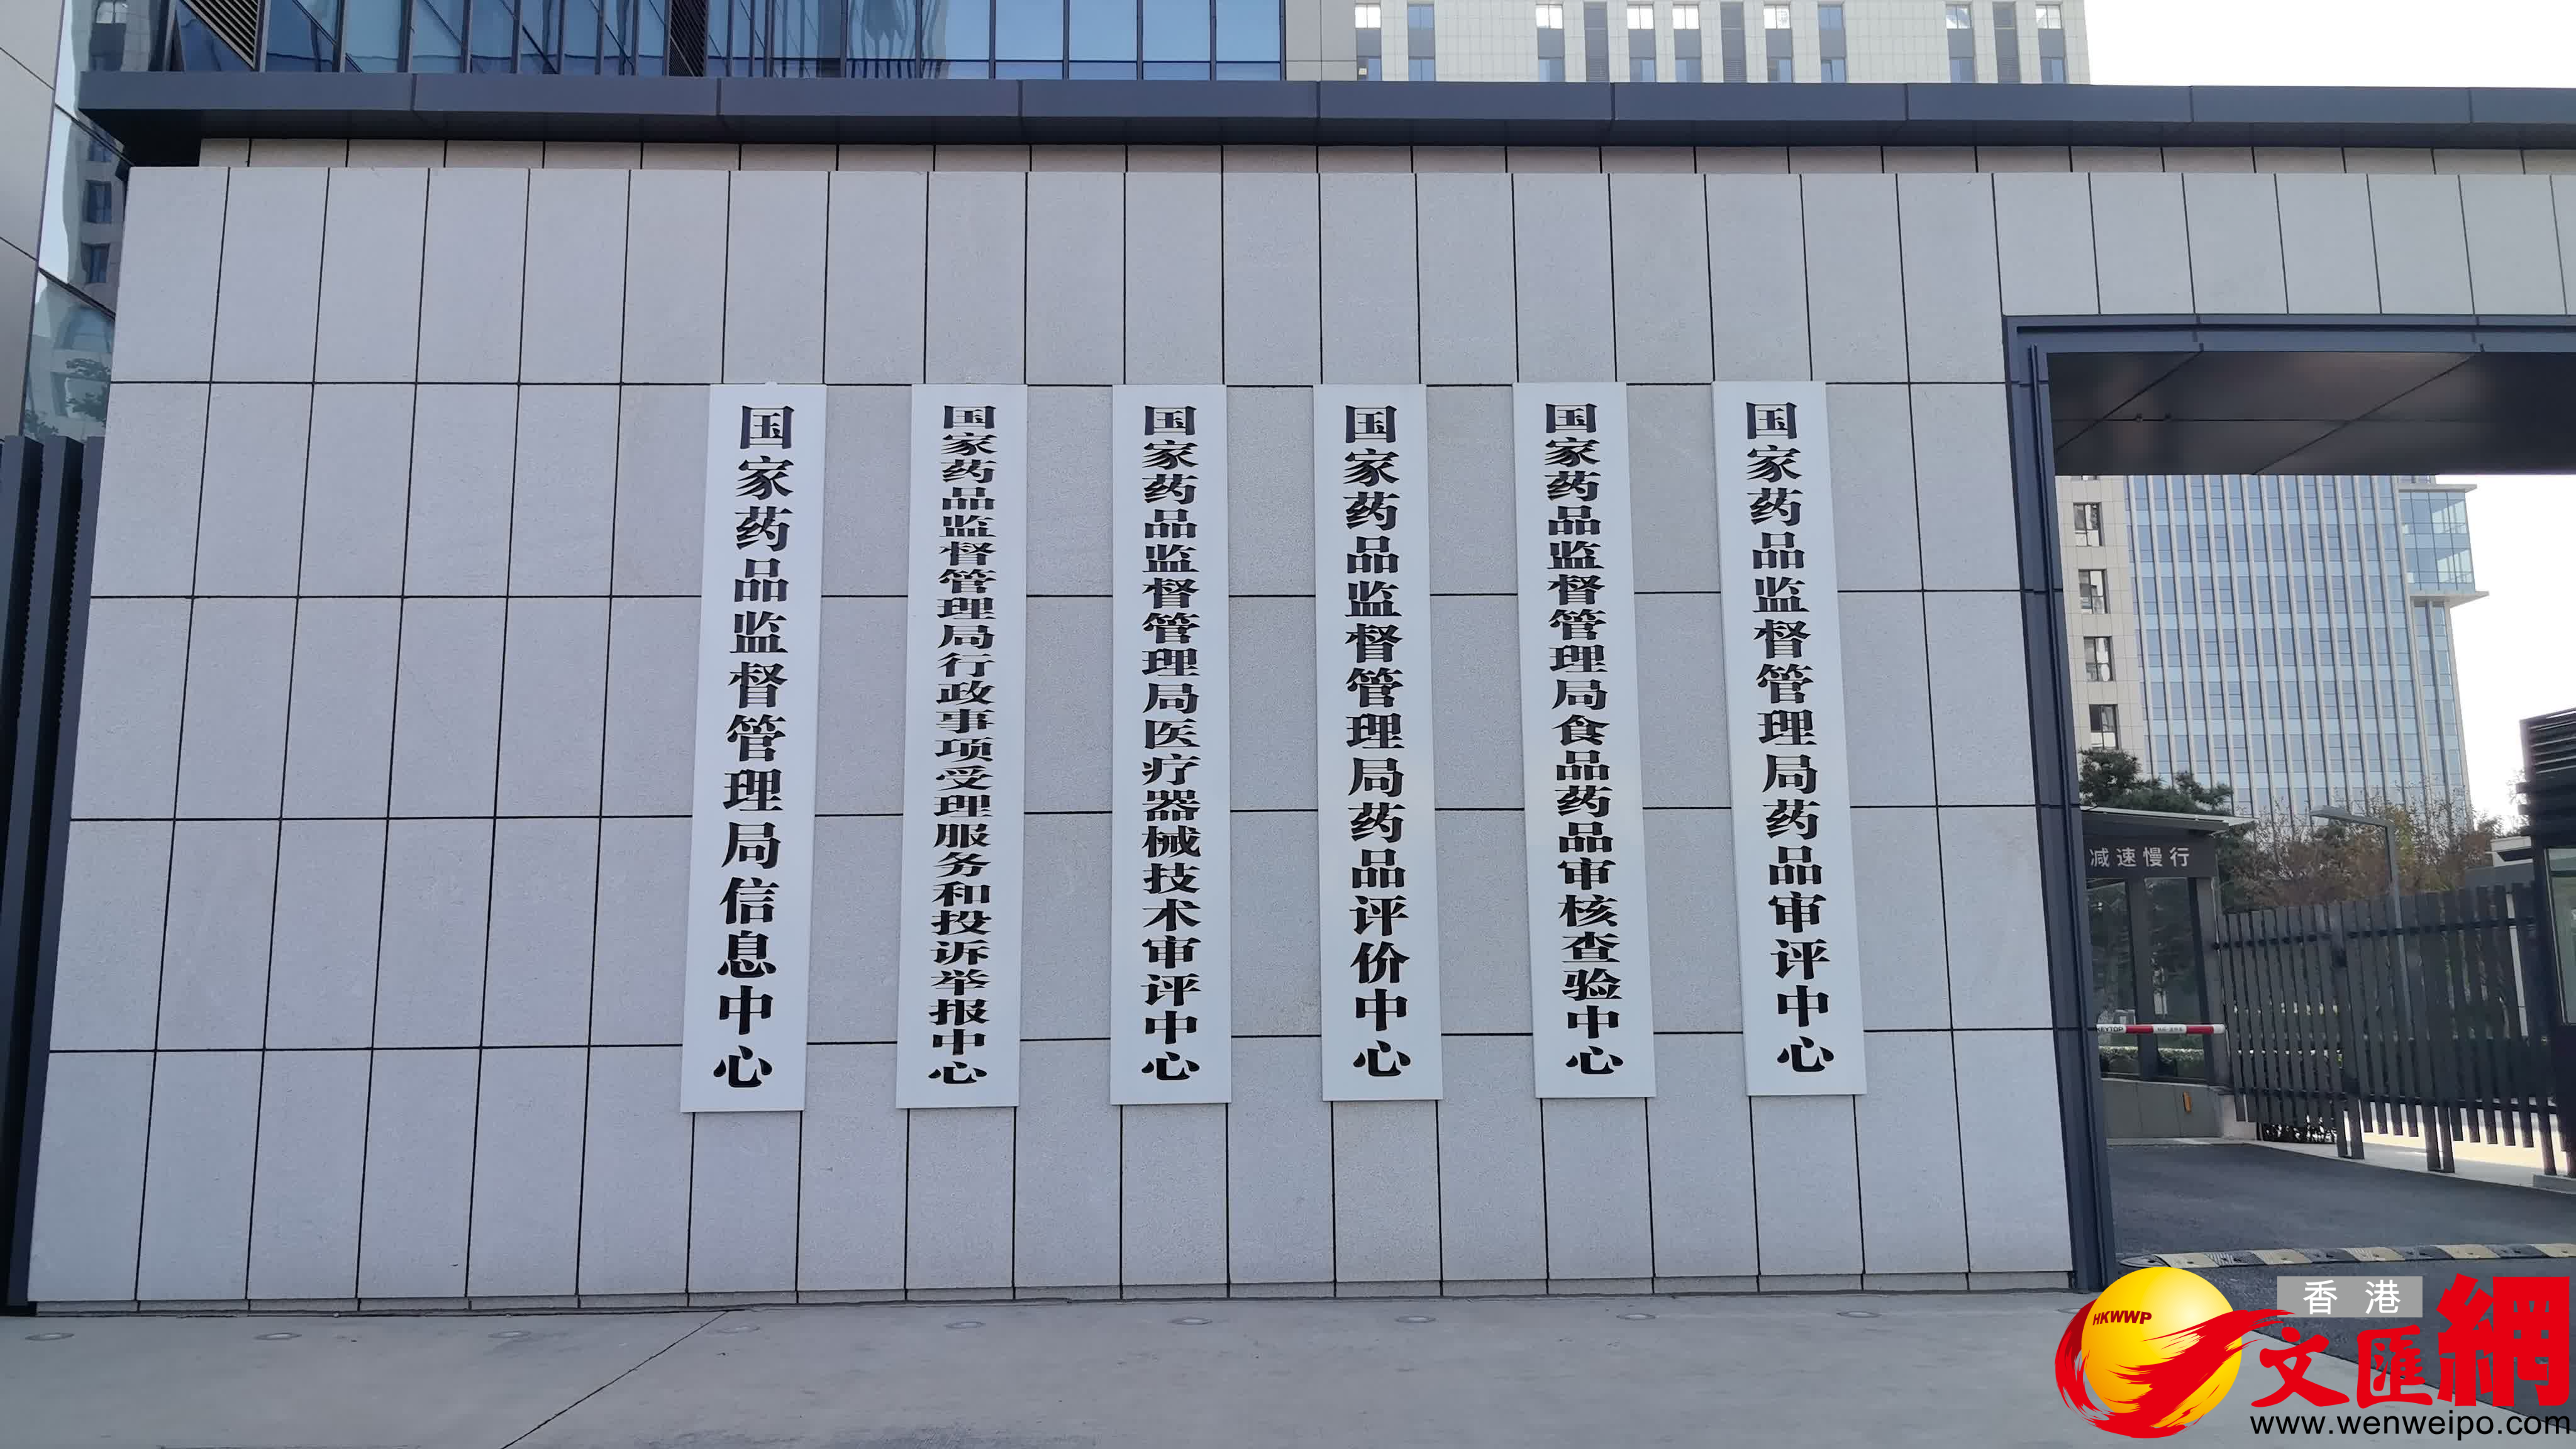 国家药品监督管理局信息中心
国家药品监督管理局行政事项受理服务和投诉举报中心
国家药品监督管理局医疗器械技术审评中心
国家药品监督管理局药品评价中心
国家药品监督管理局食品药品审核查验中心
国家药品监督管理局药品审评中心
减速慢行
HKWWP
香港
文匯網
www.wenweipo.com